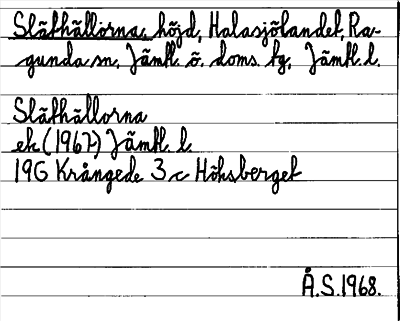 Släthällorna, höjd, Halasjölandet, Ra-
gunda sn, Jämtl. ö. doms. tg, Jämtl. l.
Släthällorna
ek (1967) Jämtl. l.
19G Krångede 3 c Höksberget
Å.S. 1968.